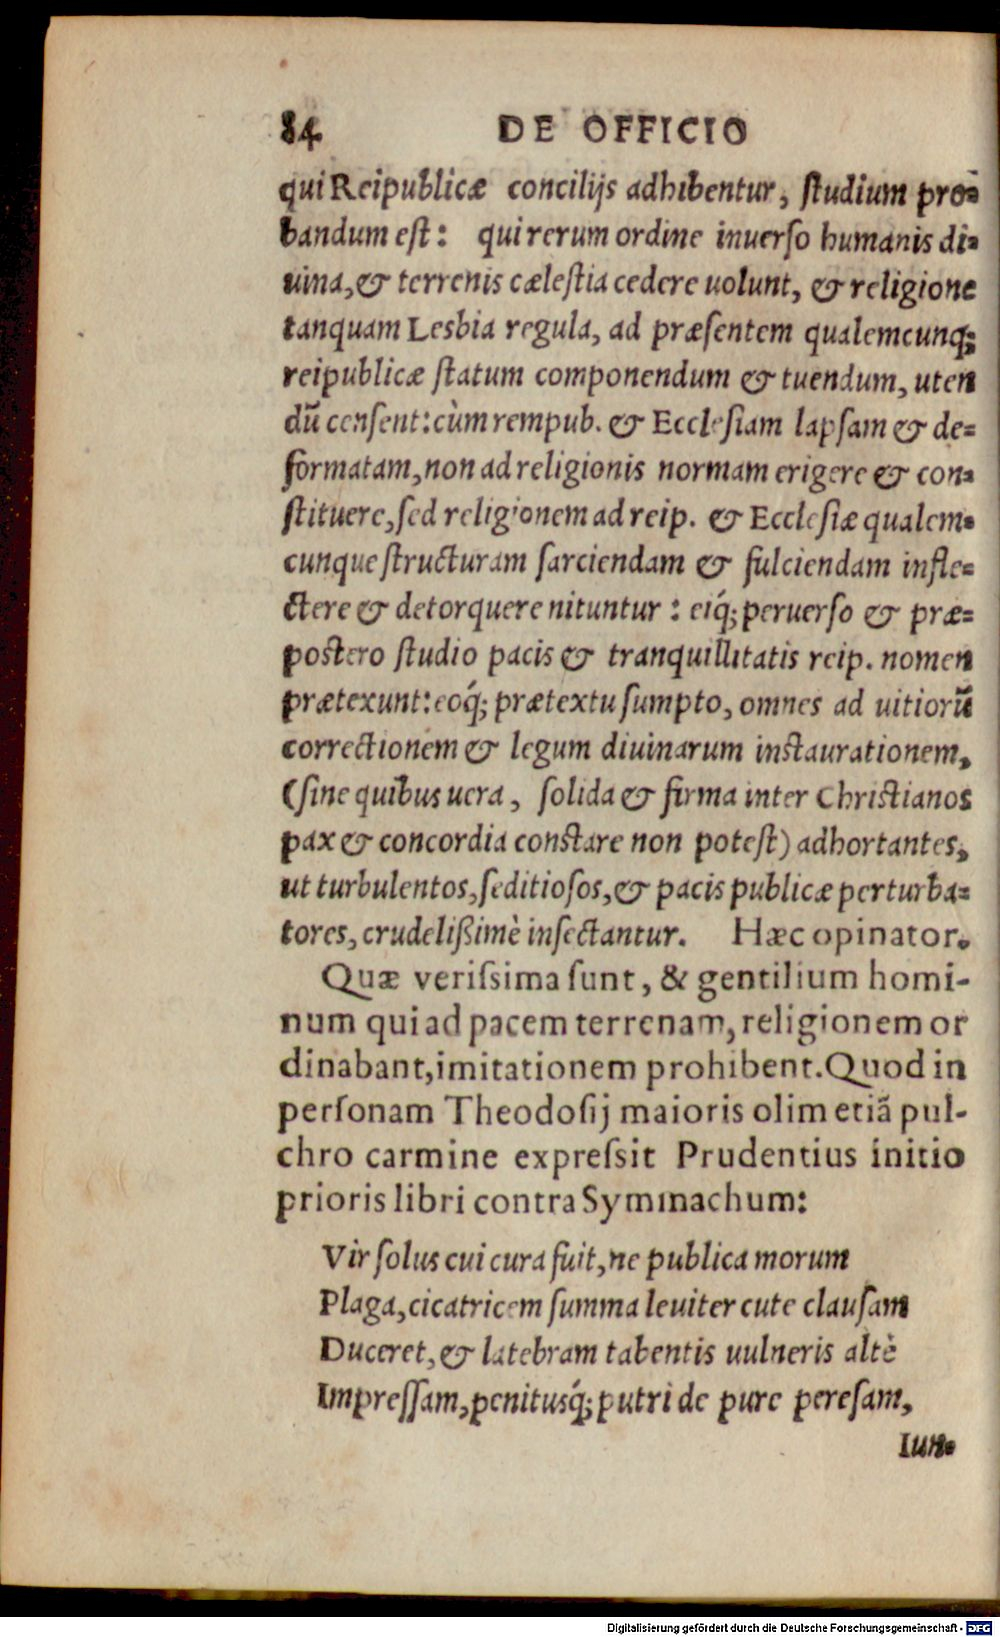 84 DE OFFICIO
qui Reipublicæ concilijs adhibentur, ſtudium pro⸗
bandum eſt: qui rerum ordine inuerſo humanis di⸗
uina, & terrenis cæleſtia cedere uolunt, & religione
tanquam Lesbia regula, ad præſentem qualemcunq;
reipublicæ ſtatum componendum & tuendum, uten
dũ cenſent: cùm rempub. & Eccleſiam lapſam & de⸗
formatam, non ad religionis normam erigere & con⸗
ſtituere, ſed religionem ad reip. & Eccleſiæ qualem⸗
cunque ſtructuram ſarciendam & fulciendam infle⸗
ctere & detorquere nituntur: eiq́; peruerſo & præ⸗
postero ſtudio pacis & tranquillitatis reip. nomen
prætexunt: eoq́; prætextu ſumpto, omnes ad uitiorũ
correctionem & legum diuinarum inſtaurationem,
(ſine quibus uera, ſolida & firma inter Chriſtianos
pax & concordia conſtare non poteſt) adhortantes,
ut turbulentos, ſeditioſos, & pacis publicæ perturba⸗
tores, crudelißimè inſectantur. Hæc opinator.
Quæ veriſsima ſunt, & gentilium homi-
num qui ad pacem terrenam, religionem or
dinabant, imitationem prohibent. Quod in
perſonam Theodoſij maioris olim etiã pul-
chro carmine expreſsit Prudentius initio
prioris libri contra Symmachum:
Vir ſolus cui cura fuit, ne publica morum
Plaga, cicatricem ſumma leuiter cute clauſam
Duceret, & latebram tabentis uulneris altè
Impreſſam, penitusq́; putri de pure pereſam,
Iun⸗
Digitalisierung gefördert durch die Deutsche Forschungsgemeinschaft - DFG